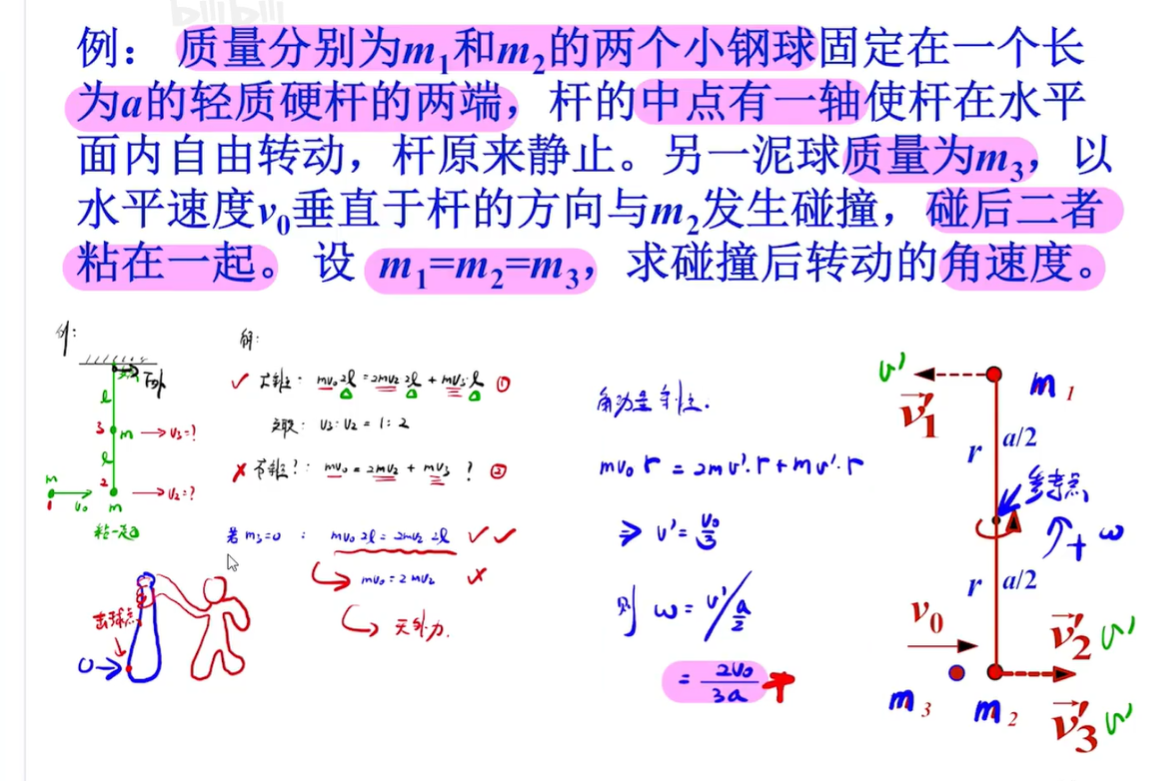 bilibili
例： 质量分别为m₁和m₂的两个小钢球固定在一个长
为a的轻质硬杆的两端，杆的中点有一轴使杆在水平
面内自由转动，杆原来静止。另一泥球质量为m₃，以
水平速度v₀垂直于杆的方向与m₂发生碰撞，碰后二者
粘在一起。 设 m₁=m₂=m₃， 求碰撞后转动的角速度。
例:
l
3 m → v₃=?
l
m 2
1 v₀ m → v₂=?
粘一起
击球点
解:
✓ : mv₀2l = 2mv₂ 2l + mv₃ l ①
: v₃:v₂ = 1:2
✗ ?: mv₀ = 2mv₂ + mv₃ ? ②
若 m₃=0 : mv₀ 2l = 2mv₂ 2l ✓ ✓
mv₀ = 2mv₂ ✗
无外力.
角动量守恒.
mv₀ r = 2mv'·r + mv'·r
⇒ v' = v₀/3
则 ω = v'/(a/2)
= 2v₀/3a
v' v₁' m₁
r a/2
参考点
+ ω
r a/2
v₀ v₂' v'
m₃ m₂ v₃' v'